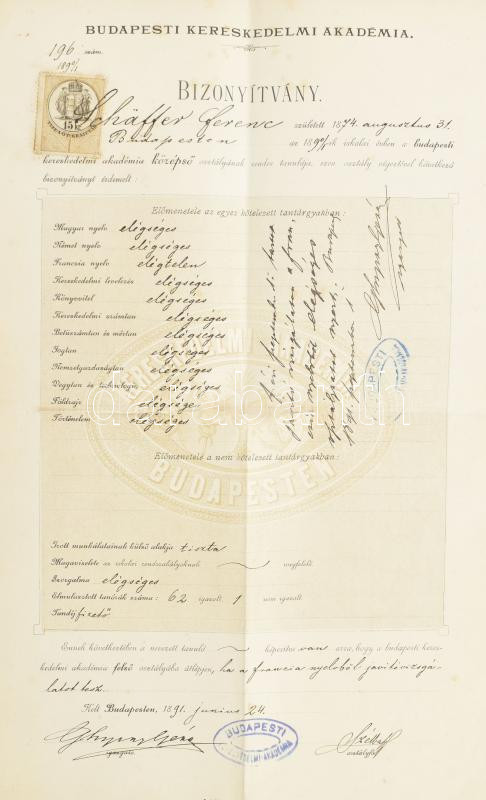 BUDAPESTI KERESKEDELMI AKADÉMIA.
196 szám.
1890/1
15 kr
BIZONYÍTVÁNY.
Schäffer Ferenc született 1874. augusztus 31.
Budapesten az 1890/1-ik iskolai évben a budapesti
kereskedelmi akadémia középső osztályának rendes tanulója, ezen osztály végeztével következő
bizonyítványt érdemelt:
Előmenetele az egyes kötelezett tantárgyakban:
Magyar nyelv elégséges
Német nyelv elégséges
Franczia nyelv elégtelen
Kereskedelmi levelezés elégséges
Könyvvitel elégséges
Kereskedelmi számtan elégséges
Betűszámtan és mértan elégséges
Jogtan elégséges
Nemzetgazdaságtan elégséges
Vegytan és technologia elégséges
Földrajz elégséges
Történelem elégséges
Előmenetele a nem kötelezett tantárgyakban:
Írott munkálatainak külső alakja tiszta
Magaviselete az iskolai rendszabályoknak megfelelő.
Szorgalma elégséges
Elmulasztott tanórák száma: 62 igazolt 1 nem igazolt.
Tandíj fizető
Ennek következtében a nevezett tanuló képesítve van arra, hogy a budapesti keres-
kedelmi akadémia felső osztályába átlépjen, ha a francia nyelvből javítóvizsgá-
latot tesz.
Kelt Budapesten, 1891. junius 24.
igazgató.
BUDAPESTI
KERESKEDELMI AKADÉMIA
osztályfő.
F. évi szeptemberben tartott
javító vizsgálaton a fran-
nyelvből elégséges
1891. szeptember 1
BUDAPESTI
BUDAPESTEN
darabanth